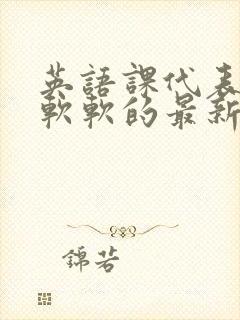 英語課代表
軟軟的最新
錦若